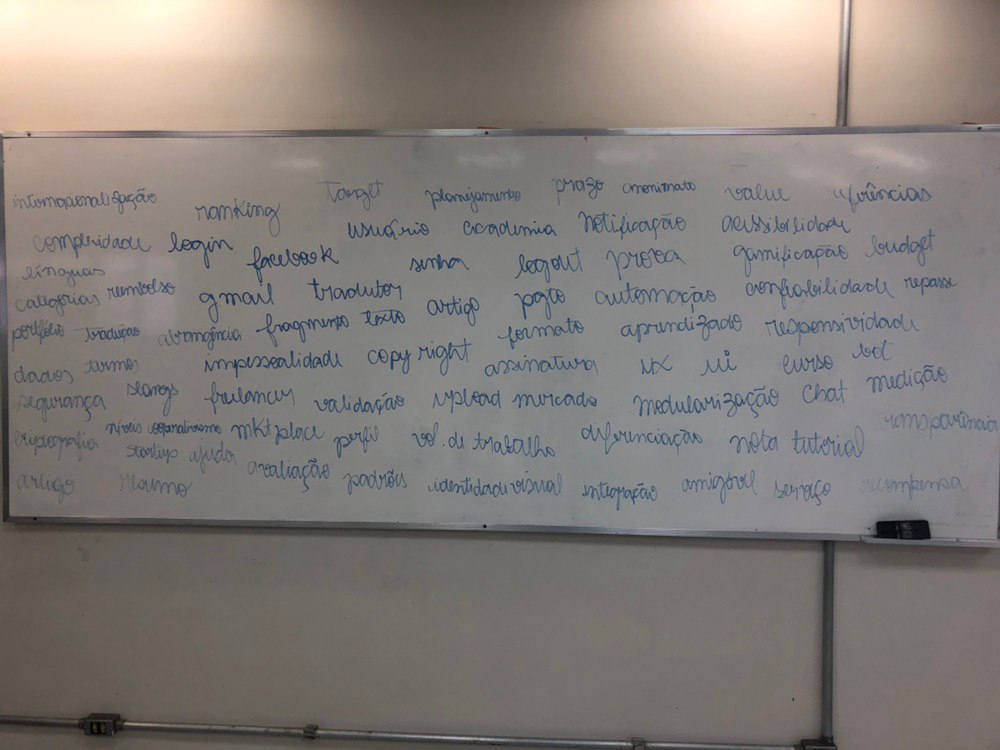 internacionalização ranking target planejamento prazo anonimato value
complexidade login facebook usuário academia notificação acessibilidade
línguas senha logout prova gamificação budget
categorias reembolso gmail tradutor artigo pgto automação confiabilidade repasse
portfólio tradução abrangência fragmento texto formato aprendizado responsividade
dados termos impessoalidade copyright assinatura ux ui curso bot
segurança slangs freelancer validação upload mercado modularização chat medição
criptografia níveis cooperativismo mktplace perfil vol. de trabalho diferenciação nota tutorial transparência
startup ajuda avaliação padrões identidade visual integração amigável serviço recompensa
artigo resumo